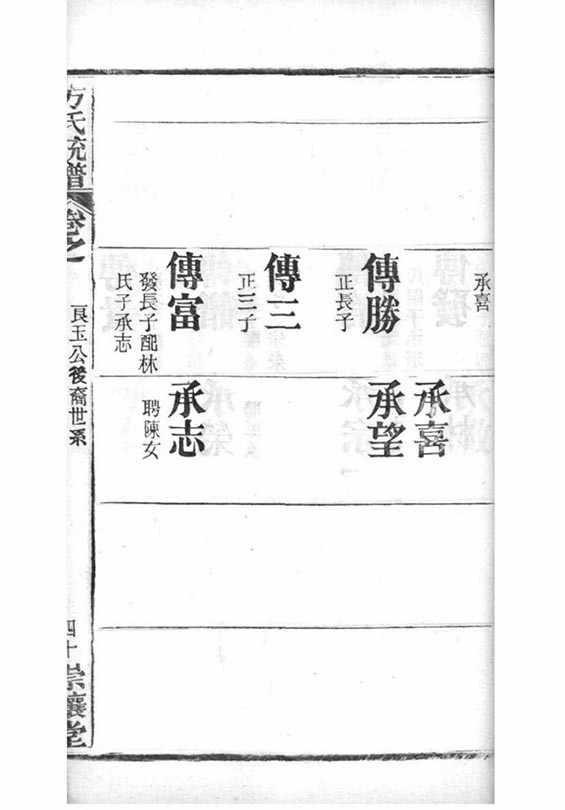 承喜
承喜
傳勝
正長子
承望
傳三
正三子
傳富
發長子配林
氏子承志
承志
聘陳女
方氏統譜
卷之一
良玉公後裔世系
四十
崇讓堂